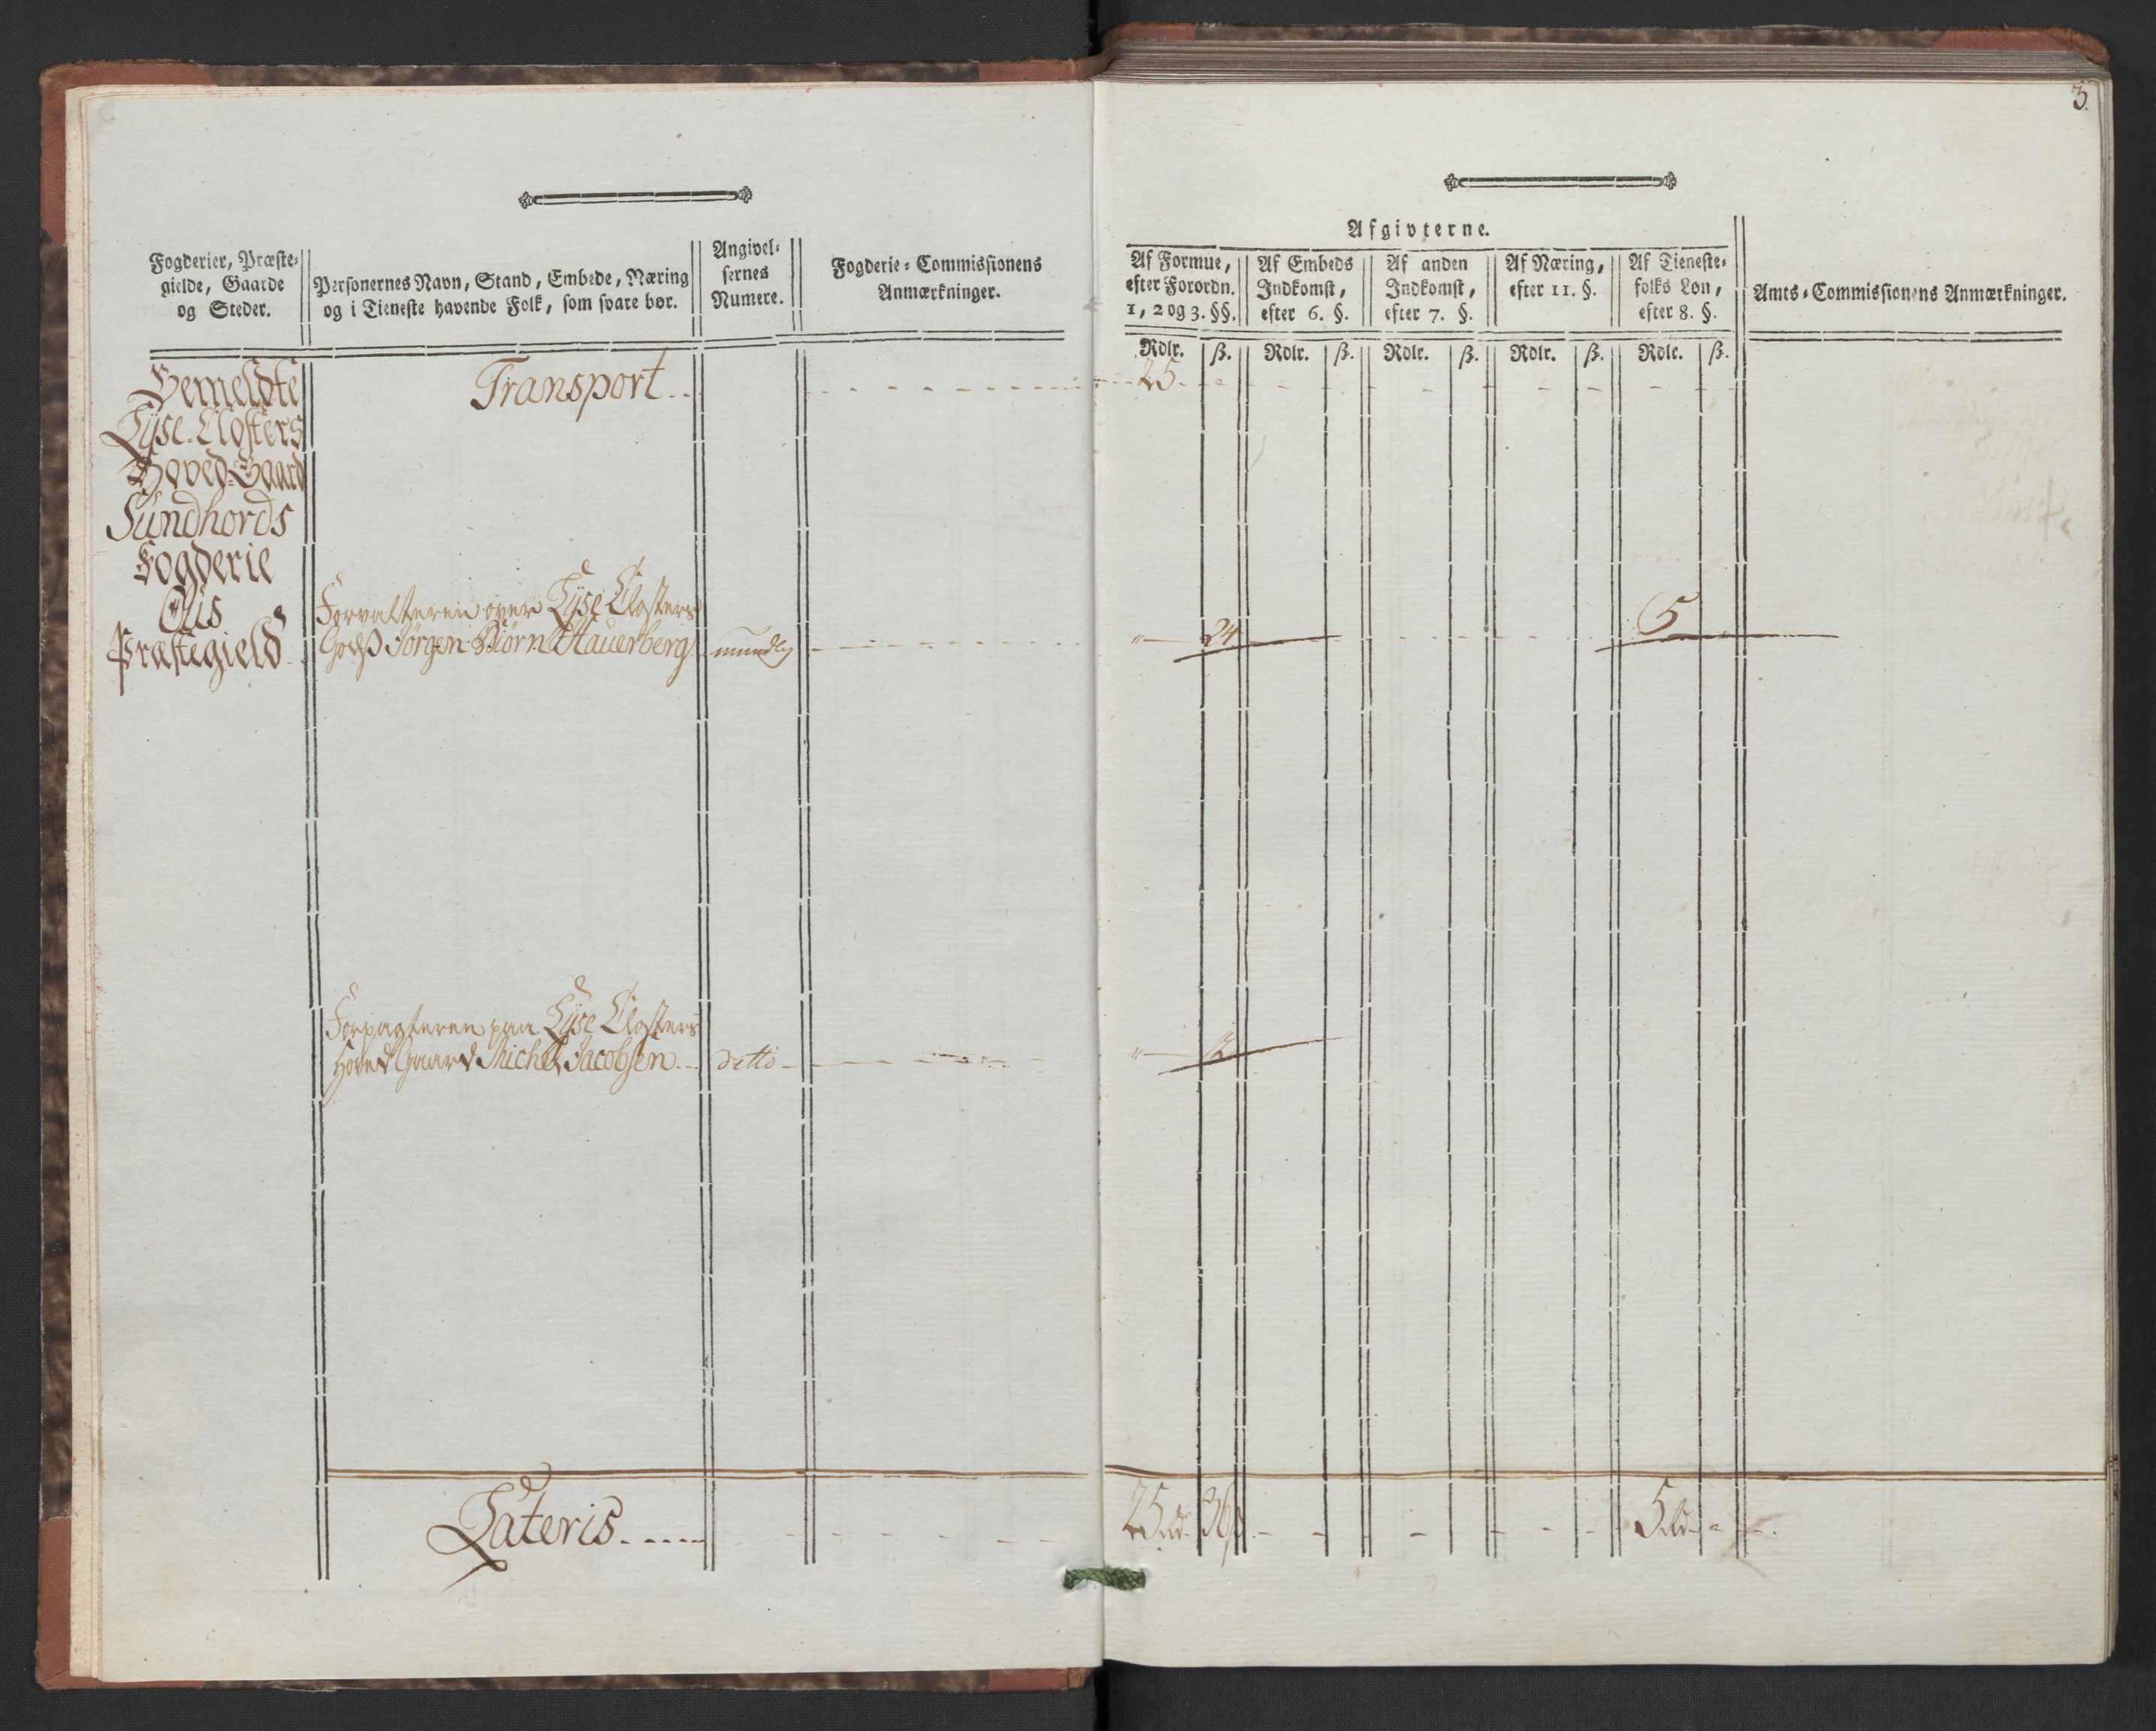 3.
Fogderier, Præste-
gielde, Gaarde
og Steder.
Personernes Navn, Stand, Embede, Næring
og i Tieneste havende Folk, som svare bør.
Angivel-
sernes
Numere.
Fogderie-Commissionens
Anmærkninger.
Afgivterne.
Af Formue,
efter Forordn.
1, 2 og 3. §§.
Af Embeds
Indkomst,
efter 6. §.
Af anden
Indkomst,
efter 7. §.
Af Næring,
efter 11. §.
Af Tieneste-
folks Løn,
efter 8. §.
Amts-Commissionens Anmærkninger.
Rdlr. ß. Rdlr. ß. Rdlr. ß. Rdlr. ß. Rdlr. ß.
Bemeldte
Lyse-Closters
Hoved-Gaard
Sundhords
Fogderie
Ous
Præstegield
Transport .. 25. -
Forvalteren over Lyse Closters
Godß Jørgen Biørn Hauerberg mundlig " 24 5
Forpagteren paa Lyse Closters
Hoved Gaard Michel Jacobsen detto " 12
Lateris..... 25 rd. 36 ß 5 rd. -